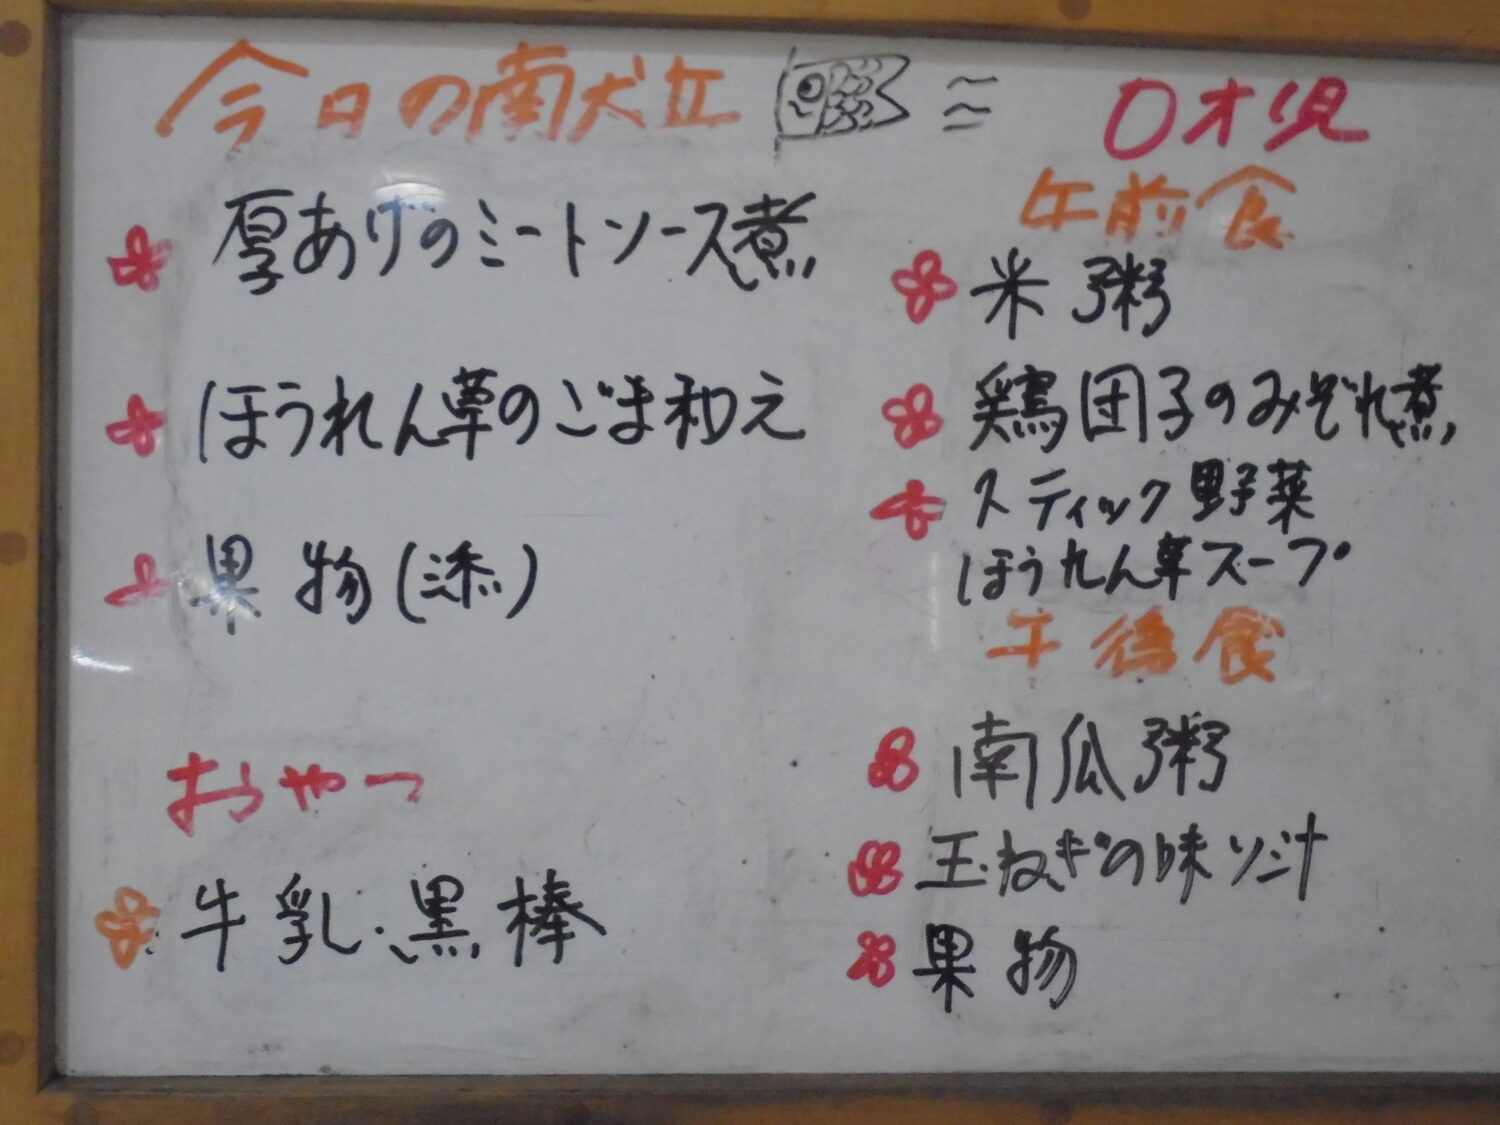 今日の献立
厚あげのミートソース煮
ほうれん草のごま和え
果物(添)
おやつ
牛乳・黒棒
0才児
午前食
米粥
鶏団子のみぞれ煮
スティック野菜
ほうれん草スープ
午後食
南瓜粥
玉ねぎの味ソ汁
果物